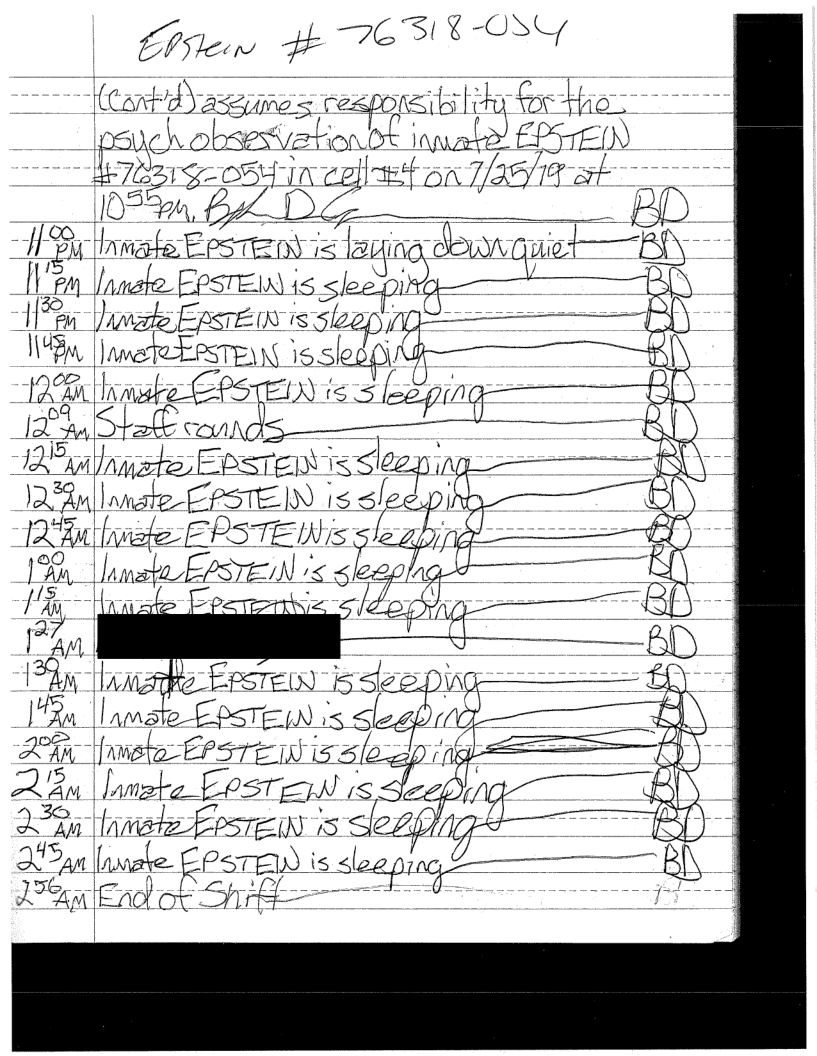 EPSTEIN # 76318-054
(Cont'd) assumes responsibility for the
psych observation of inmate EPSTEIN
#76318-054 in cell #4 on 7/25/19 at
10 55 PM, BD
11 00 PM Inmate EPSTEIN is laying down quiet BD
11 15 PM Inmate EPSTEIN is sleeping BD
11 30 PM Inmate EPSTEIN is sleeping BD
11 45 PM Inmate EPSTEIN is sleeping BD
12 00 AM Inmate EPSTEIN is sleeping BD
12 09 AM Staff rounds BD
12 15 AM Inmate EPSTEIN is sleeping BD
12 30 AM Inmate EPSTEIN is sleeping BD
12 45 AM Inmate EPSTEIN is sleeping BD
1 00 AM Inmate EPSTEIN is sleeping BD
1 15 AM Inmate EPSTEIN is sleeping BD
1 27 AM, BD
1 30 AM Inmate EPSTEIN is sleeping BD
1 45 AM Inmate EPSTEIN is sleeping BD
2 00 AM Inmate EPSTEIN is sleeping BD
2 15 AM Inmate EPSTEIN is sleeping BD
2 30 AM Inmate EPSTEIN is sleeping BD
2 45 AM Inmate EPSTEIN is sleeping BD
2 56 AM End of Shift